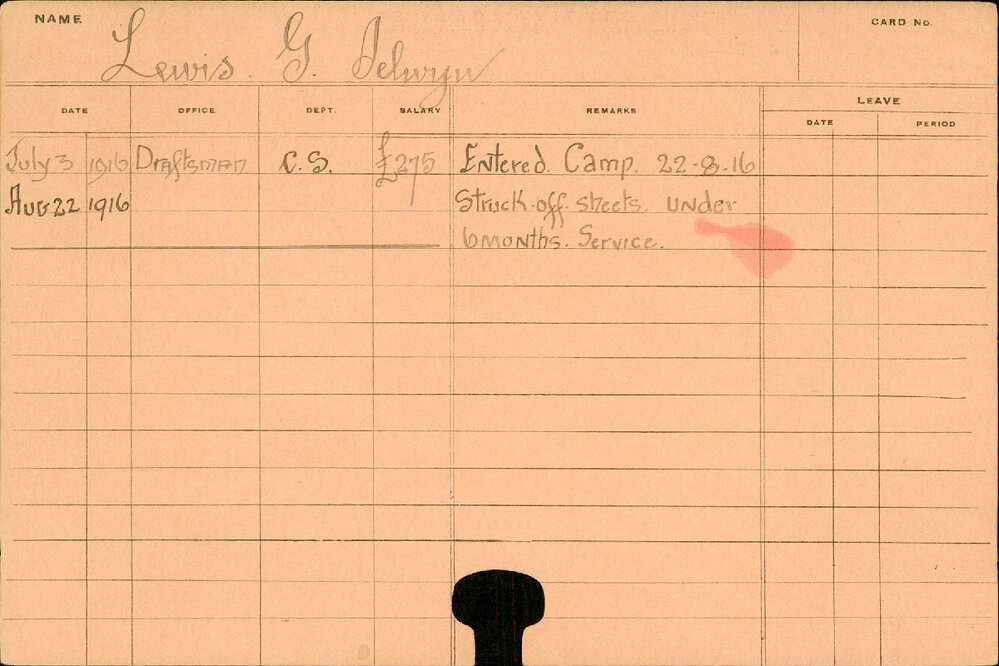 NAME Lewis. G. Selwyn CARD No.
DATE OFFICE DEPT. SALARY REMARKS LEAVE
DATE PERIOD
July 3 1916 Draftsman C.S. £275 Entered. Camp. 22-8-16
Aug 22 1916 Struck-off. sheets. under
6 months. Service.